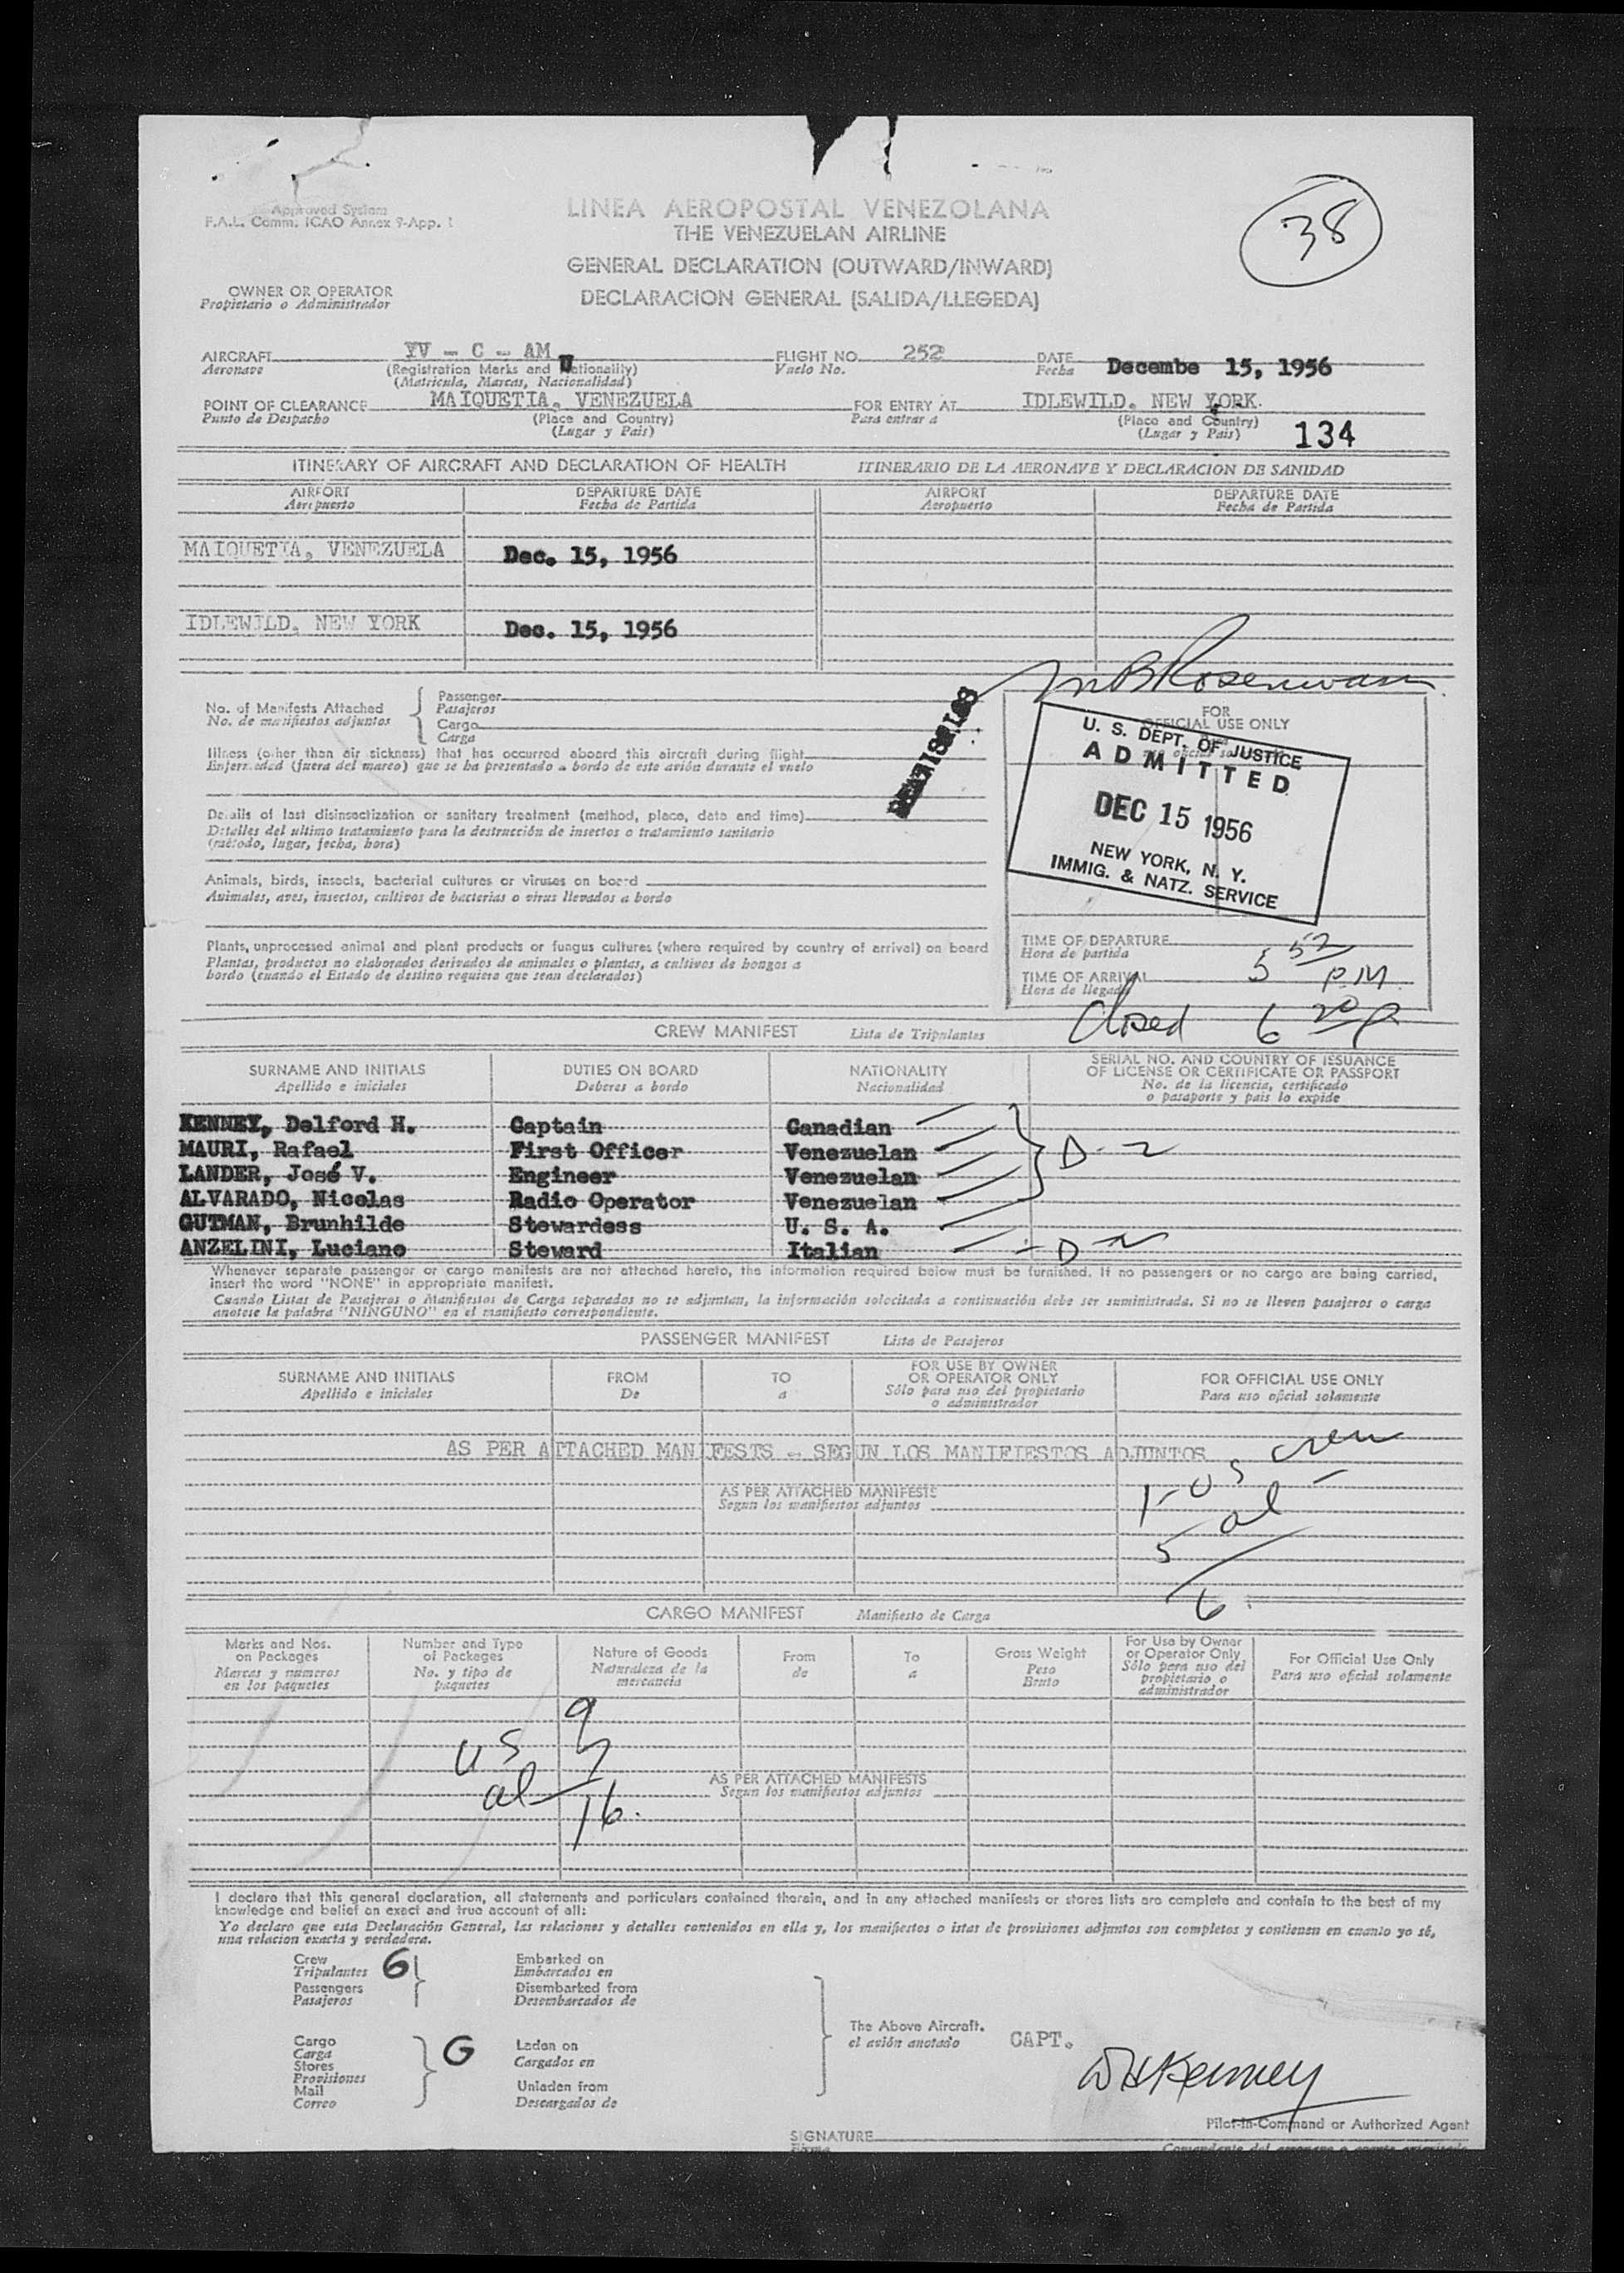 Approved System
F.A.L. Comm. ICAO Annex 9-App. 1
LINEA AEROPOSTAL VENEZOLANA
THE VENEZUELAN AIRLINE
GENERAL DECLARATION (OUTWARD/INWARD)
DECLARACION GENERAL (SALIDA/LLEGEDA)
38
OWNER OR OPERATOR
Propietario o Administrador
AIRCRAFT YV - C - AM U FLIGHT NO. 252 DATE Decembe 15, 1956
Aeronave (Registration Marks and Nationality) Vuelo No. Fecha
(Matricula, Marcas, Nacionalidad)
POINT OF CLEARANCE MAIQUETIA, VENEZUELA FOR ENTRY AT IDLEWILD, NEW YORK.
Punto de Despacho (Place and Country) Para entrar a (Place and Country)
(Lugar y Pais) (Lugar y Pais) 134
ITINERARY OF AIRCRAFT AND DECLARATION OF HEALTH ITINERARIO DE LA AERONAVE Y DECLARACION DE SANIDAD
AIRPORT DEPARTURE DATE AIRPORT DEPARTURE DATE
Aeropuerto Fecha de Partida Aeropuerto Fecha de Partida
MAIQUETIA, VENEZUELA Dec. 15, 1956
IDLEWILD, NEW YORK Dec. 15, 1956
No. of Manifests Attached
No. de manifiestos adjuntos
Passenger
Pasajeros
Cargo
Carga
Illness (other than air sickness) that has occurred aboard this aircraft during flight
Enfermedad (fuera del mareo) que se ha presentado a bordo de este avión durante el vuelo
Details of last disinsectization or sanitary treatment (method, place, date and time)
Detalles del ultimo tratamiento para la destrucción de insectos o tratamiento sanitario
(método, lugar, fecha, hora)
Animals, birds, insects, bacterial cultures or viruses on board
Animales, aves, insectos, cultivos de bacterias o virus llevados a bordo
Plants, unprocessed animal and plant products or fungus cultures (where required by country of arrival) on board
Plantas, productos no elaborados derivados de animales o plantas, a cultivos de hongos a
bordo (cuando el Estado de destino requiera que sean declarados)
FOR
OFFICIAL USE ONLY
U. S. DEPT. OF JUSTICE
ADMITTED
DEC 15 1956
NEW YORK, N. Y.
IMMIG. & NATZ. SERVICE
TIME OF DEPARTURE
Hora de partida
TIME OF ARRIVAL 5 52 P.M.
Hora de llegada
Closed 6 20 P
CREW MANIFEST Lista de Tripulantes
SURNAME AND INITIALS DUTIES ON BOARD NATIONALITY SERIAL NO. AND COUNTRY OF ISSUANCE
OF LICENSE OR CERTIFICATE OR PASSPORT
Apellido e iniciales Deberes a bordo Nacionalidad No. de la licencia, certificado
o pasaporte y pais lo expide
KENNEY, Delford H. Captain Canadian
MAURI, Rafael First Officer Venezuelan D-2
LANDER, José V. Engineer Venezuelan
ALVARADO, Nicolas Radio Operator Venezuelan
GUTMAN, Brunhilde Stewardess U. S. A.
ANZELINI, Luciano Steward Italian - D
Whenever separate passenger or cargo manifests are not attached hereto, the information required below must be furnished. If no passengers or no cargo are being carried,
insert the word "NONE" in appropriate manifest.
Cuando Listas de Pasajeros o Manifiestos de Carga separados no se adjuntan, la información solocitada a continuación debe ser suministrada. Si no se lleven pasajeros o carga
anotese la palabra "NINGUNO" en el manifiesto correspondiente.
PASSENGER MANIFEST Lista de Pasajeros
SURNAME AND INITIALS FROM TO FOR USE BY OWNER
OR OPERATOR ONLY FOR OFFICIAL USE ONLY
Apellido e iniciales De a Sólo para uso del propietario
o administrador Para uso oficial solamente
AS PER ATTACHED MANIFESTS - SEGUN LOS MANIFIESTOS ADJUNTOS
crew
AS PER ATTACHED MANIFESTS
Segun los manifiestos adjuntos
1 - US
5 al
6
CARGO MANIFEST Manifiesto de Carga
Marks and Nos.
on Packages
Marcas y números
en los paquetes
Number and Type
of Packages
No. y tipo de
paquetes
Nature of Goods
Naturaleza de la
mercancia
From
de
To
a
Gross Weight
Peso
Bruto
For Use by Owner
or Operator Only
Sólo para uso del
propietario o
administrador
For Official Use Only
Para uso oficial solamente
US 9
al 7
16.
AS PER ATTACHED MANIFESTS
Segun los manifiestos adjuntos
I declare that this general declaration, all statements and particulars contained therein, and in any attached manifests or stores lists are complete and contain to the best of my
knowledge and belief an exact and true account of all:
Yo declaro que esta Declaración General, las relaciones y detalles contenidos en ella y, los manifiestos o istas de provisiones adjuntos son completos y contienen en cuanto yo sé,
una relacion exacta y verdadera.
Crew
Tripulantes 6
Passengers
Pasajeros
Embarked on
Embarcados en
Disembarked from
Desembarcados de
Cargo
Carga
Stores
Provisiones
Mail
Correo
G
Laden on
Cargados en
Unladen from
Descargados de
The Above Aircraft.
el avión anotado
CAPT.
DHKenney
Pilot-in-Command or Authorized Agent
SIGNATURE
Firma